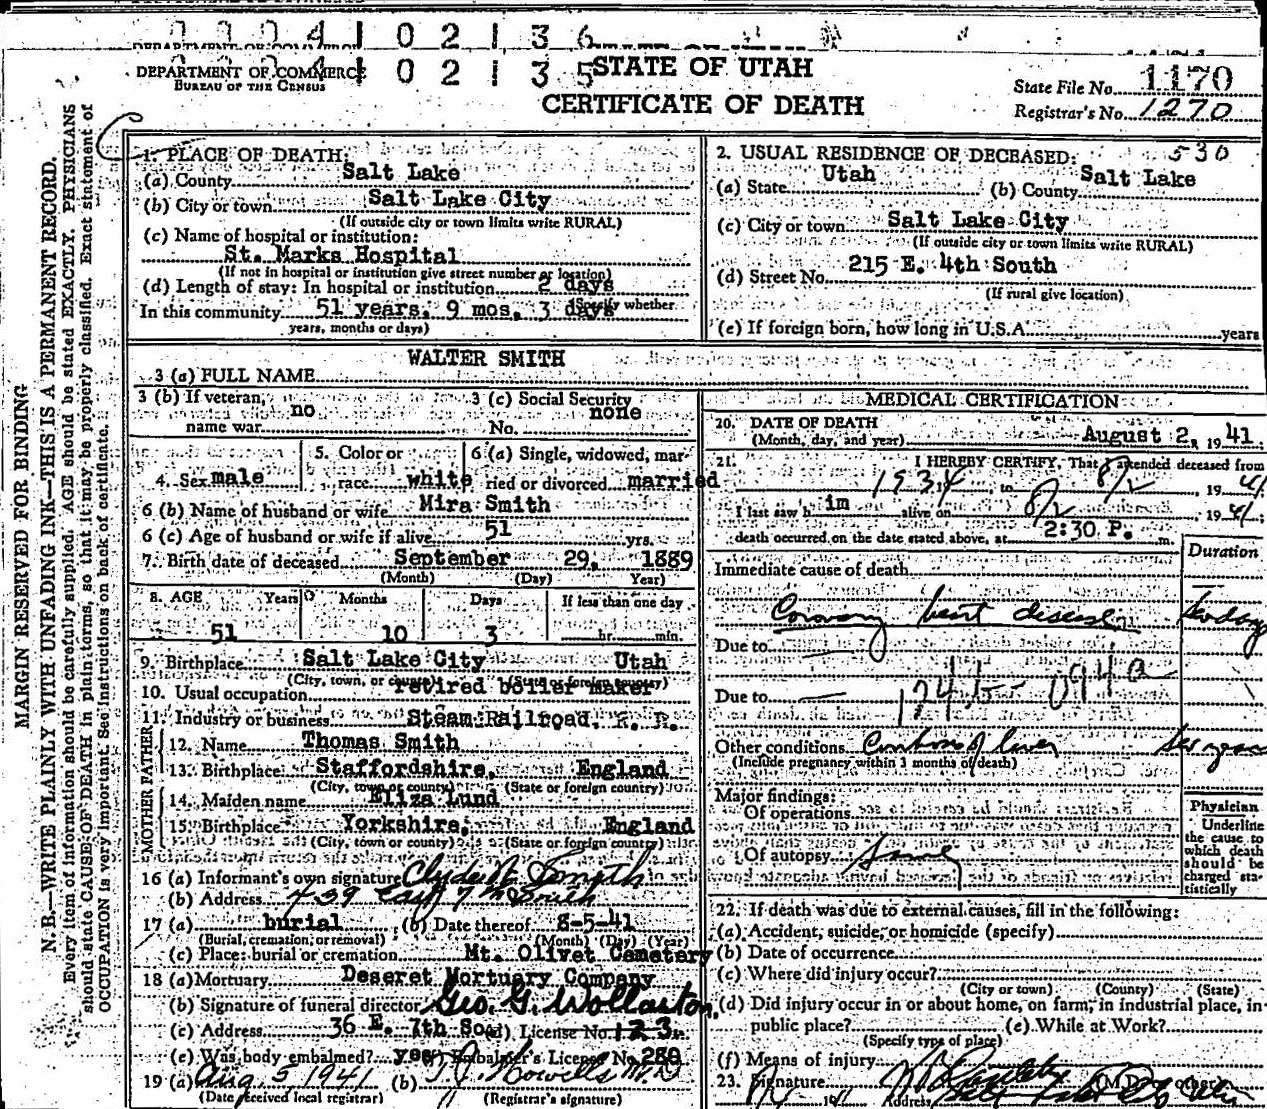 0 0 0 4 1 0 2 1 3 6
4 1 0 2 1 3 5
DEPARTMENT OF COMMERCE
BUREAU OF THE CENSUS
STATE OF UTAH
CERTIFICATE OF DEATH
State File No. 1170
Registrar's No. 1270
MARGIN RESERVED FOR BINDING
N. B.—WRITE PLAINLY WITH UNFADING INK—THIS IS A PERMANENT RECORD.
Every item of information should be carefully supplied. AGE should be stated EXACTLY. PHYSICIANS
should state CAUSE OF DEATH in plain terms, so that it may be properly classified. Exact statement of
OCCUPATION is very important. See instructions on back of certificate.
1. PLACE OF DEATH:
(a) County Salt Lake
(b) City or town Salt Lake City
(If outside city or town limits write RURAL)
(c) Name of hospital or institution:
St. Marks Hospital
(If not in hospital or institution give street number or location)
(d) Length of stay: In hospital or institution 2 days
(Specify whether
In this community 51 years, 9 mos. 3 days
years, months or days)
2. USUAL RESIDENCE OF DECEASED: 530
(a) State Utah (b) County Salt Lake
(c) City or town Salt Lake City
(If outside city or town limits write RURAL)
(d) Street No. 215 E. 4th South
(If rural give location)
(e) If foreign born, how long in U.S.A. years
WALTER SMITH
3 (a) FULL NAME
3 (b) If veteran, name war no
3 (c) Social Security No. none
4. Sex male
5. Color or race white
6 (a) Single, widowed, married or divorced married
6 (b) Name of husband or wife Mira Smith
6 (c) Age of husband or wife if alive 51 yrs.
7. Birth date of deceased September 29, 1889
(Month) (Day) Year)
8. AGE Years Months Days If less than one day
51 10 3 hr. min.
9. Birthplace Salt Lake City Utah
(City, town, or county) (State or foreign country)
10. Usual occupation retired boiler maker
11. Industry or business Steam Railroad. R. R.
FATHER
12. Name Thomas Smith
13. Birthplace Staffordshire, England
(City, town or county) (State or foreign country)
MOTHER
14. Maiden name Eliza Lund
15. Birthplace Yorkshire, England
(City, town or county) (State or foreign country)
16 (a) Informant's own signature Clyde Smyth
(b) Address 439 East 7th South
17 (a) burial (b) Date thereof 8-5-41
(Burial, cremation, or removal) (Month) (Day) (Year)
(c) Place: burial or cremation Mt. Olivet Cemetery
18 (a) Mortuary Deseret Mortuary Company
(b) Signature of funeral director Geo. G. Wollaston
(c) Address 36 E. 7th So. (d) License No. 123
(e) Was body embalmed? yes (f) Embalmer's License No. 280
19 (a) Aug. 5, 1941 (b) T. J. Howells M.D
(Date received local registrar) (Registrar's signature)
MEDICAL CERTIFICATION
20. DATE OF DEATH
(Month, day, and year) August 2, 1941
21. I HEREBY CERTIFY, That I attended deceased from
1934, to 8/2, 1941
I last saw him alive on 8/2, 1941
death occurred on the date stated above, at 2:30 P. m.
Duration
Immediate cause of death
Coronary heart disease
Due to
Due to 094a
Other conditions Cirrhosis of liver
(Include pregnancy within 3 months of death)
Major findings:
Of operations
Of autopsy
Physician
Underline
the cause to
which death
should be
charged sta-
tistically
22. If death was due to external causes, fill in the following:
(a) Accident, suicide, or homicide (specify)
(b) Date of occurrence
(c) Where did injury occur?
(City or town) (County) (State)
(d) Did injury occur in or about home, on farm, in industrial place, in
public place? (e) While at Work?
(Specify type of place)
(f) Means of injury
23. Signature (M.D. or other)
Address